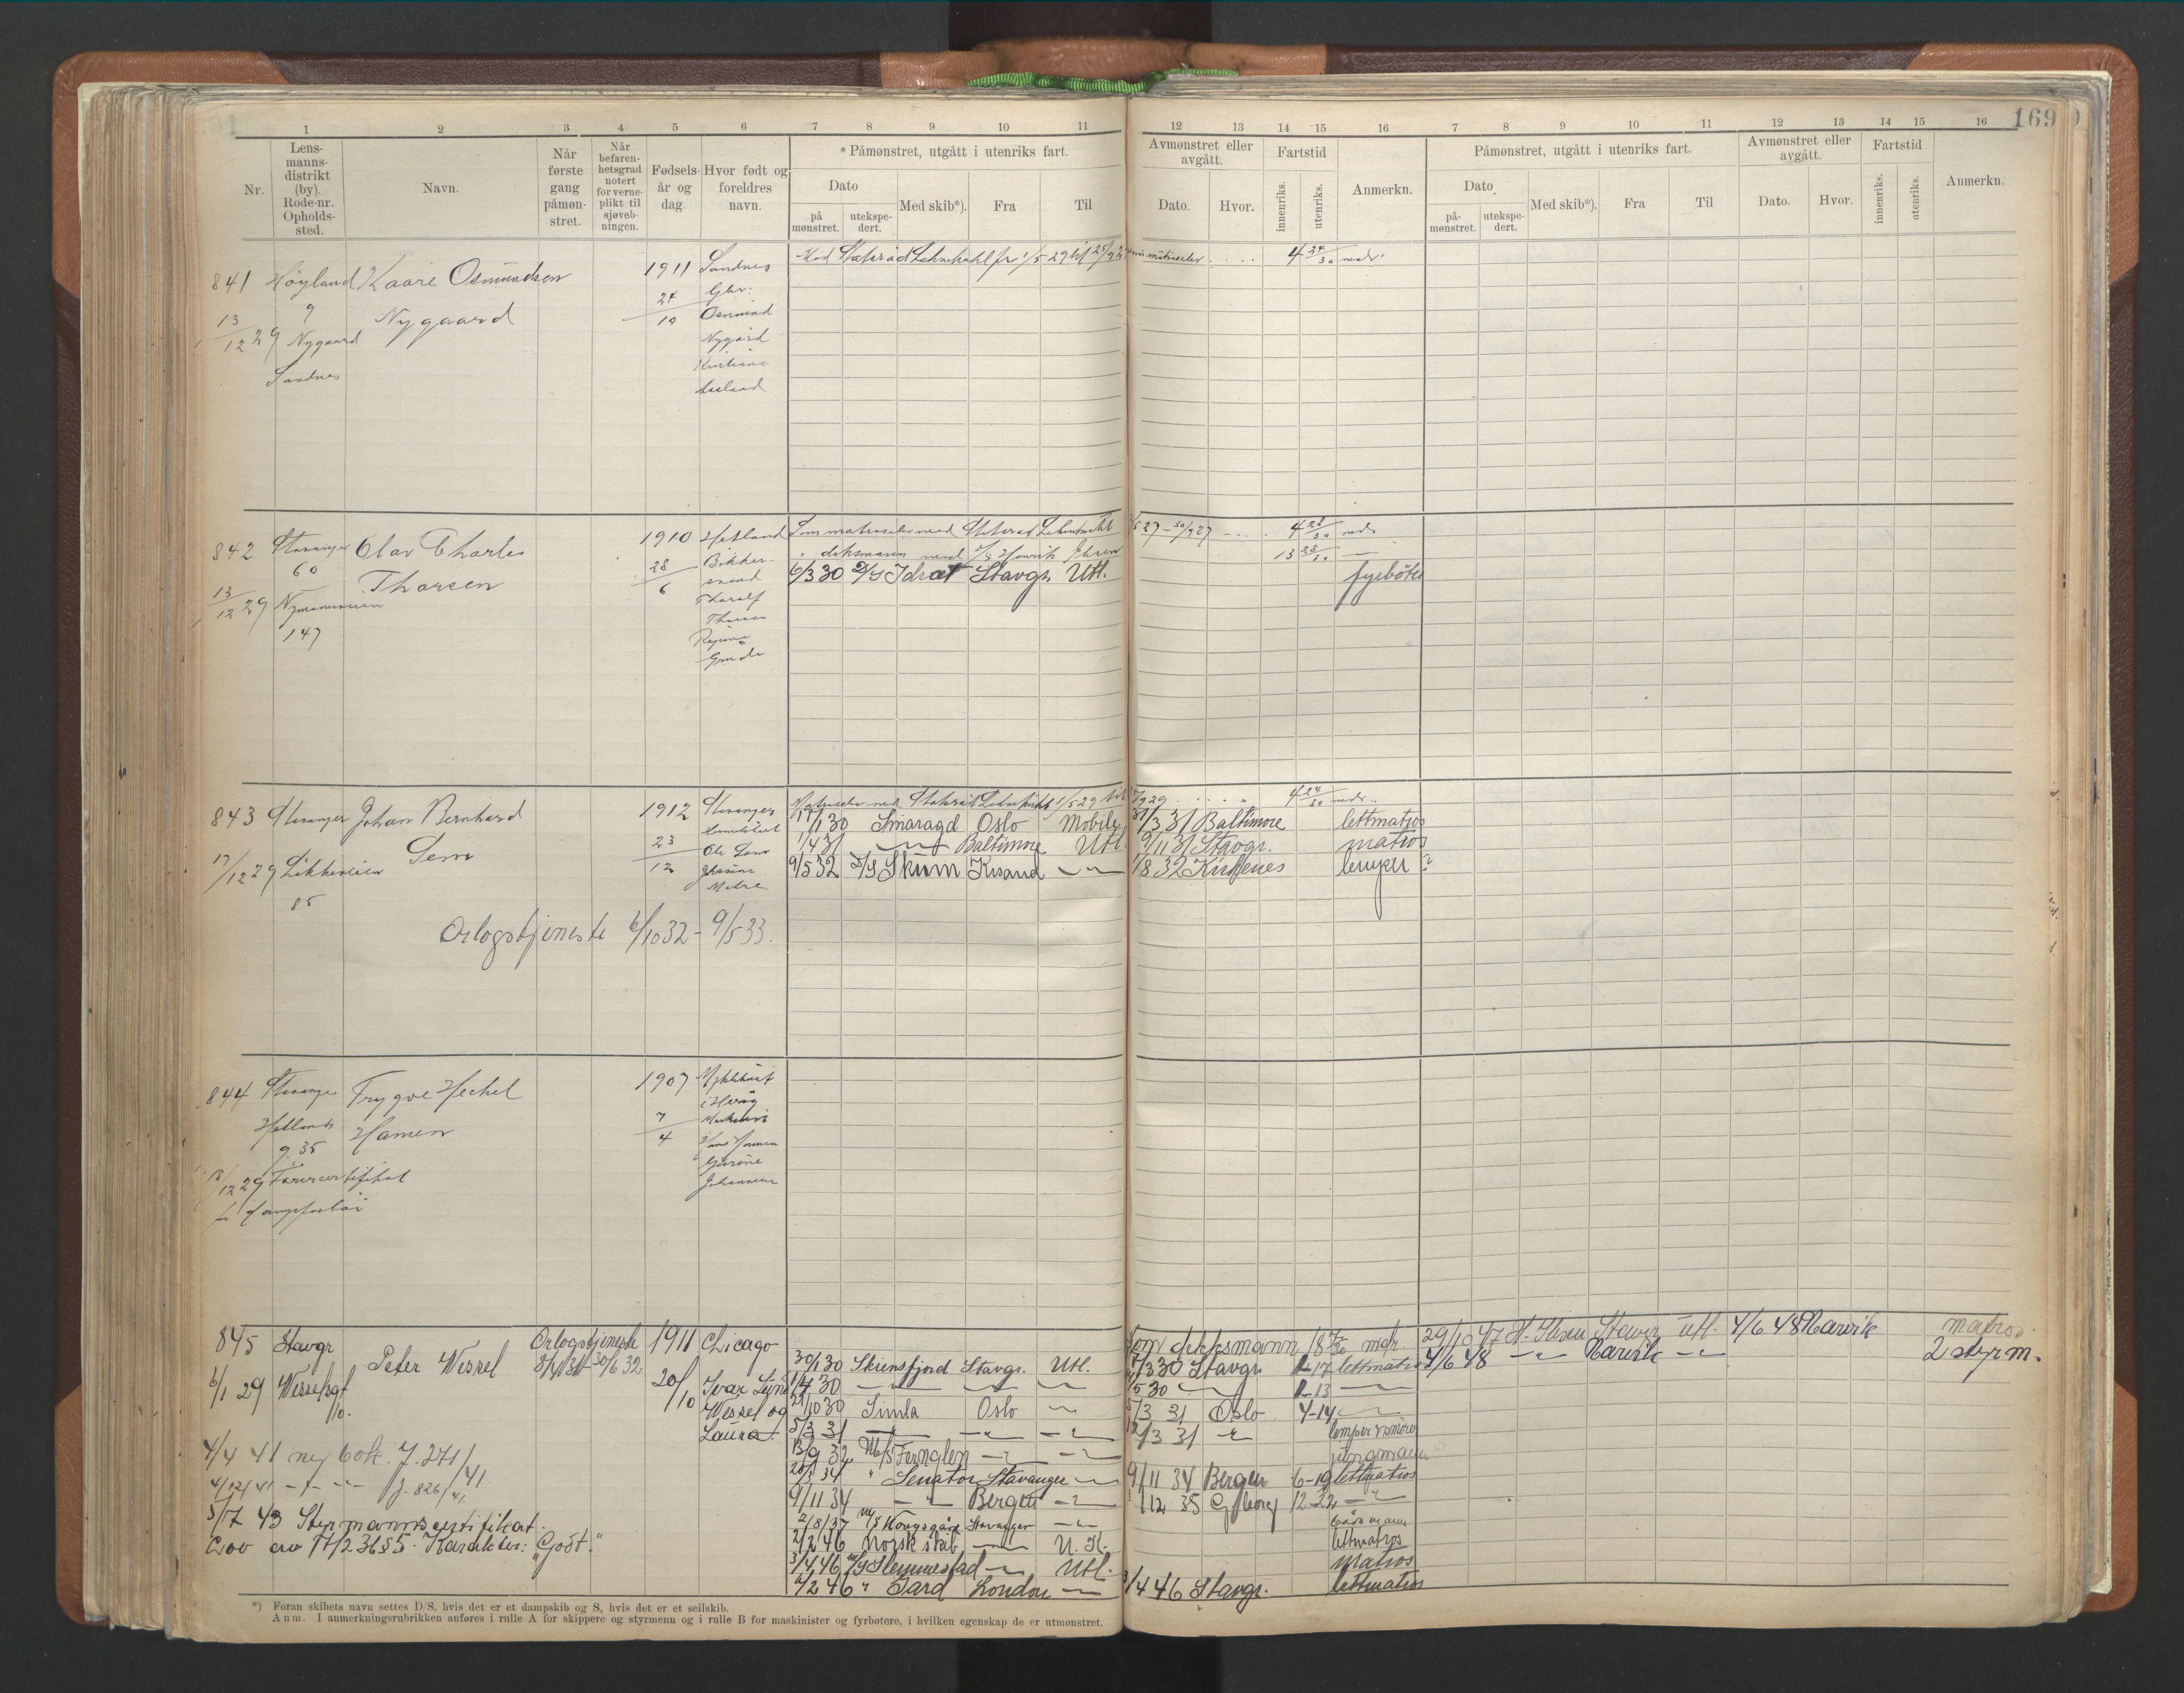 169
1 2 3 4 5 6 7 8 9 10 11 12 13 14 15 16 7 8 9 10 11 12 13 14 15 16
Nr.
Lens-
manns-
distrikt
(by).
Rode-nr.
Opholds-
sted.
Navn.
Når
første
gang
påmøn-
stret.
Når
befaren-
hetsgrad
notert
for verne-
plikt til
sjøveb-
ningen.
Fødsels-
år og
dag
Hvor født og
foreldres
navn.
*Påmønstret, utgått i utenriks fart.
Dato
på
mønstret.
utekspe-
dert.
Med skib*).
Fra
Til
Avmønstret eller
avgått.
Dato.
Hvor.
Fartstid
innenriks.
utenriks.
Anmerkn.
Påmønstret, utgått i utenriks fart.
Dato
på-
mønstret.
utekspe-
dert.
Med skib*).
Fra
Til
Avmønstret eller
avgått.
Dato.
Hvor.
Fartstid
innenriks.
utenriks.
Anmerkn.
841 Høyland Kaare Osmundsen 1911 Sandnes
9 Nygaard 24/10
13/12 29 Nygaard
Sandnes
Osmund
Nygård
Kristiane
Med Statsråd Lehmkuhl fr 1/5 29 til 25/9 29 4 24/30 mdr.
842 Stavanger Olav Charles 1910 Hetland
60 Thorsen 28/6
13/12 29
147
Thoralf
Thorsen
Som matroselev med Statsråd Lehmkuhl /5 27 - 30/9 27 4 mdr
dekksmann med Henrik Ibsen 13
6/3 30 D/S Idræt Stavgr. Utl. fyrbøter
843 Stavanger Johan Bernhard 1912 Stavanger
Sem 23/12
17/12 29
85
Ole Sem
Matroselev med Statsråd Lehmkuhl 1/5 29 til /9 29 4 24/30 mdr.
17/1 30 Smaragd Oslo Mobile 31/3 31 Baltimore lettmatros
1/4 31 Baltimore Utl. 9/11 31 Stavgr. matros
9/5 32 D/S Skum Krsand 1/8 32 Kirkenes lemper
Orlogstjeneste 6/10 32 - 9/5 33.
844 Stavanger Trygve Hechel 1907
Hetlands Hamen 7/4
g. 35
18/12 29 Førercertifikat
845 Stavgr Peter Wessel Orlogstjeneste 1911 Chicago
30/6 32
6/1 29 Wesselsgt 20/10 Ivar Lund
10. Wessel og
Laura.
4/4 41 ny bok. J. 271/41
4/12 41 J. 826/41
3/7 43 Styrmannscertifikat.
Karakter: "Godt."
Som dekksmann 18 mdr
30/1 30 Skiensfjord Stavgr. Utl. 7/3 30 Stavgr. 1-17 lettmatros
/5 30 1-13
21/10 30 Simla Oslo 5/3 31 Oslo 4-14
5/3 31 /3 31 lemper & smører
13/9 32 M/S Fernglen jungmann
20/3 34 Senator Stavanger 9/11 34 Bergen 6-19 lettmatros
9/11 34 Bergen /12 35 Gøteborg 12-22
2/8/37 M/S Kongsgård Stavanger båtsmann
2/2 46 Norsk skib U. K. lettmatros
3/4 46 M/S Slemmestad Utl. matros
2/2 46 Gard London 3/4 46 Stavgr. lettmatros
29/10 47 H. Ibsen Stavgr utl. 4/6 48 Narvik matros.
4/6 48 Narvik 2 styrm.
*) Foran skibets navn settes D/S, hvis det er et dampskib og S, hvis det er et seilskib.
Anm. I anmerkningsrubrikken anføres i rulle A for skippere og styrmenn og i rulle B for maskinister og fyrbøtere, i hvilken egenskap de er utmønstret.